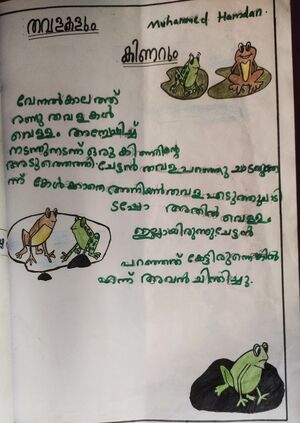 Muhammed Hamdan.
തവളകളും
കിണറും
വേനൽകാലത്ത്
രണ്ടു തവളകൾ
വെള്ളം അന്വേഷിച്ച്
നടന്നുനടന്ന് ഒരു കിണറിന്റെ
അടുത്തെത്തി ചേട്ടൻ തവള പറഞ്ഞു ചാടരുതെ
ന്ന് കേൾക്കാതെ അനിയൻ തവള എടുത്തുചാടി
അതിൽ വെള്ളം
ഇല്ലായിരുന്നു ചേട്ടൻ
പറഞ്ഞത് കേട്ടിരുന്നെങ്കിൽ
എന്ന് അവൻ ചിന്തിച്ചു.